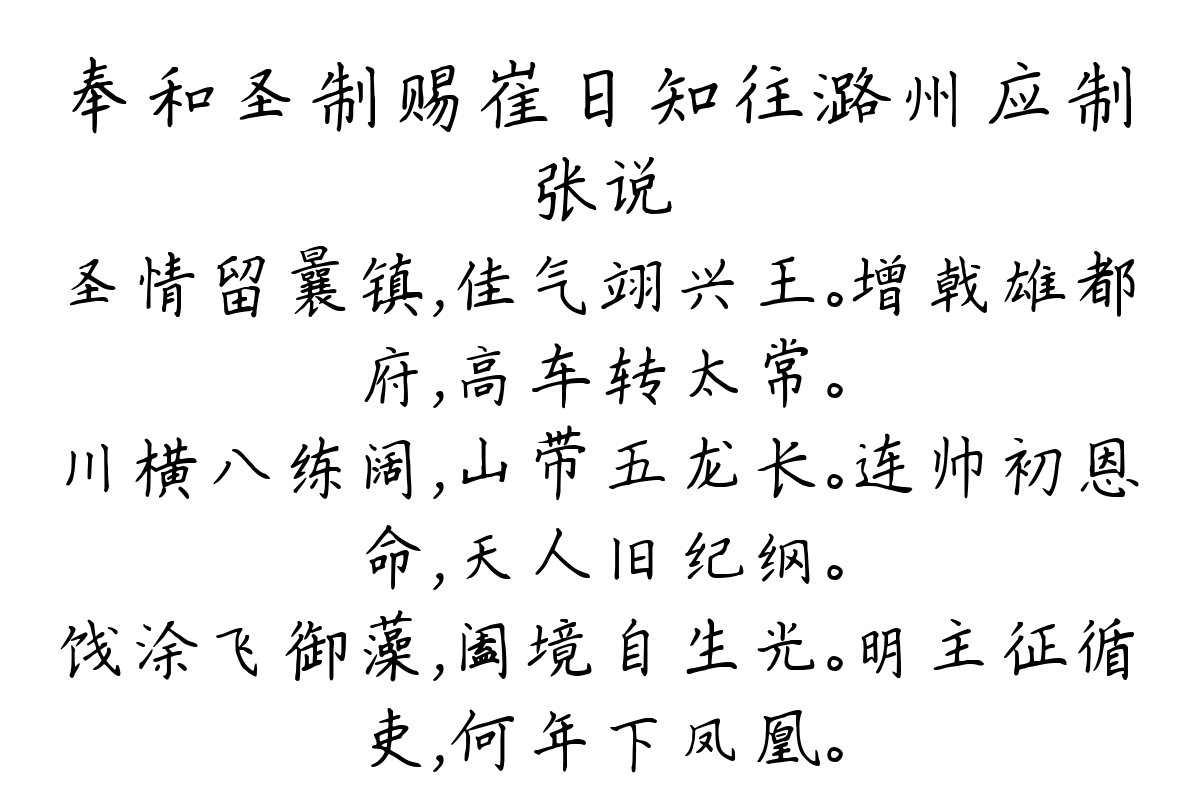 奉和圣制赐崔日知往潞州应制
张说
圣情留曩镇,佳气翊兴王。增戟雄都
府,高车转太常。
川横八练阔,山带五龙长。连帅初恩
命,天人旧纪纲。
饯涂飞御藻,阖境自生光。明主征循
吏,何年下凤凰。